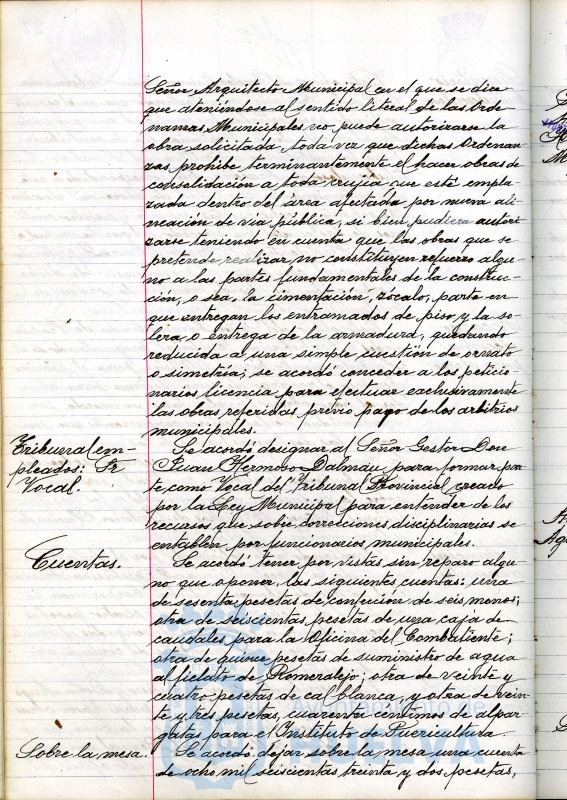 Señor Arquitecto Municipal en el que se dice
que ateniéndose al sentido literal de las Orde-
nanzas Municipales no puede autorizarse la
obra solicitada, toda vez que dichas Ordenan-
zas, prohibe terminantemente el hacer obras de
consolidación a toda crujía que esté empla-
zada dentro del área afectada por nueva ali-
neación de vía pública, si bien pudiera autori-
zarse teniendo en cuenta que las obras que se
pretende realizar, no constituyen refuerzo algu-
no a las partes fundamentales de la construc-
ción, o sea, la cimentación, zócalo, parte en
que entregan los entramados de piso y la so-
lera, o entrega de la armadura, quedando
reducida a una simple cuestión de ornato
o simetría; se acordó conceder a los peticio
narios licencia para efectuar exclusivamente
las obras referidas previo pago de los arbitrios
municipales.
Tribunal em-
pleados: Sr
Vocal.
Se acordó designar al Señor Gestor Don
Juan Hermoso Dalmau, para formar par-
te, como Vocal del Tribunal Provincial creado
por la Ley Municipal para entender de los
recursos que sobre correcciones disciplinarias se
entablen por funcionarios municipales.
Cuentas.
Se acordó tener por vistas sin reparo algu-
no que oponer, las siguientes cuentas: una
de sesenta pesetas de confección de seis monos;
otra de seiscientas pesetas de una caja de
caudales para la Oficina del Combatiente;
otra de quince pesetas de suministro de agua
al fielato de Romeralejo; otra de veinte y
cuatro pesetas de cal blanca, y otra de vein-
te y tres pesetas, cuarenta céntimos de alpar-
gatas para el Instituto de Puericultura.
Sobre la mesa.
Se acordó dejar sobre la mesa una cuenta
de ocho mil seiscientas treinta y dos pesetas,
Ayuntamiento de